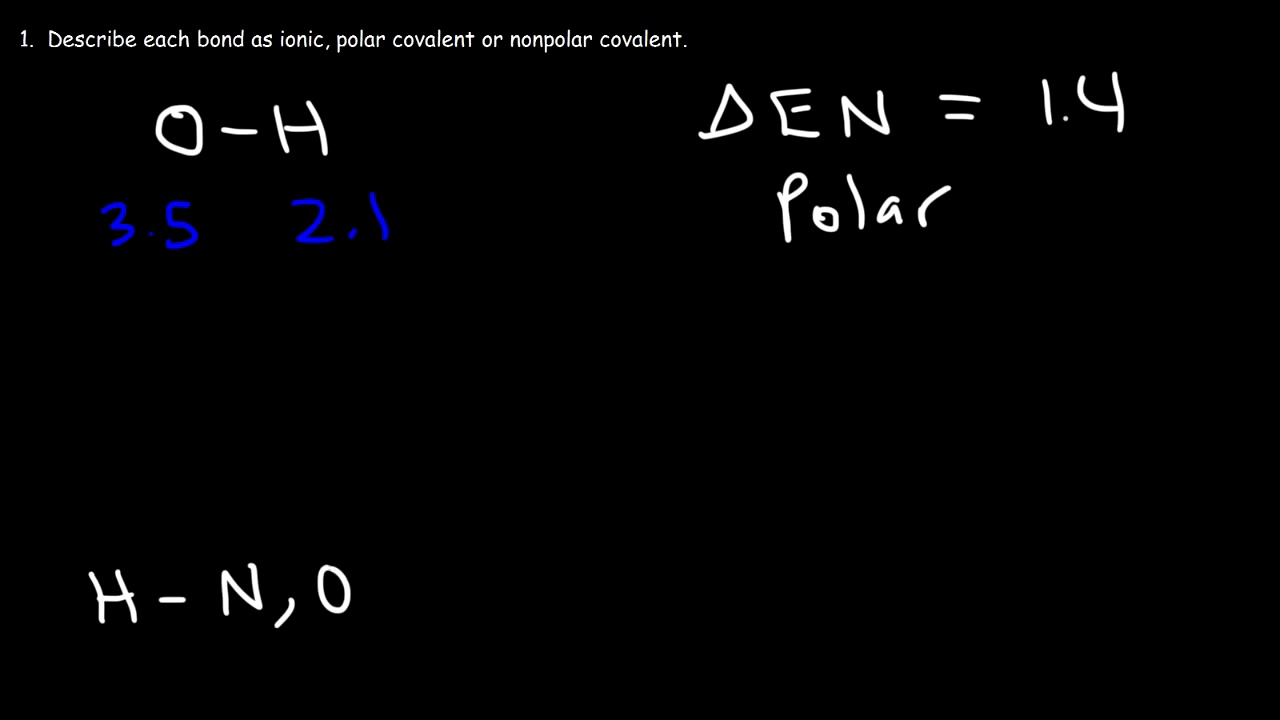 1. Describe each bond as ionic, polar covalent or nonpolar covalent.
O-H
3.5 2.1
ΔEN = 1.4
Polar
H - N, O